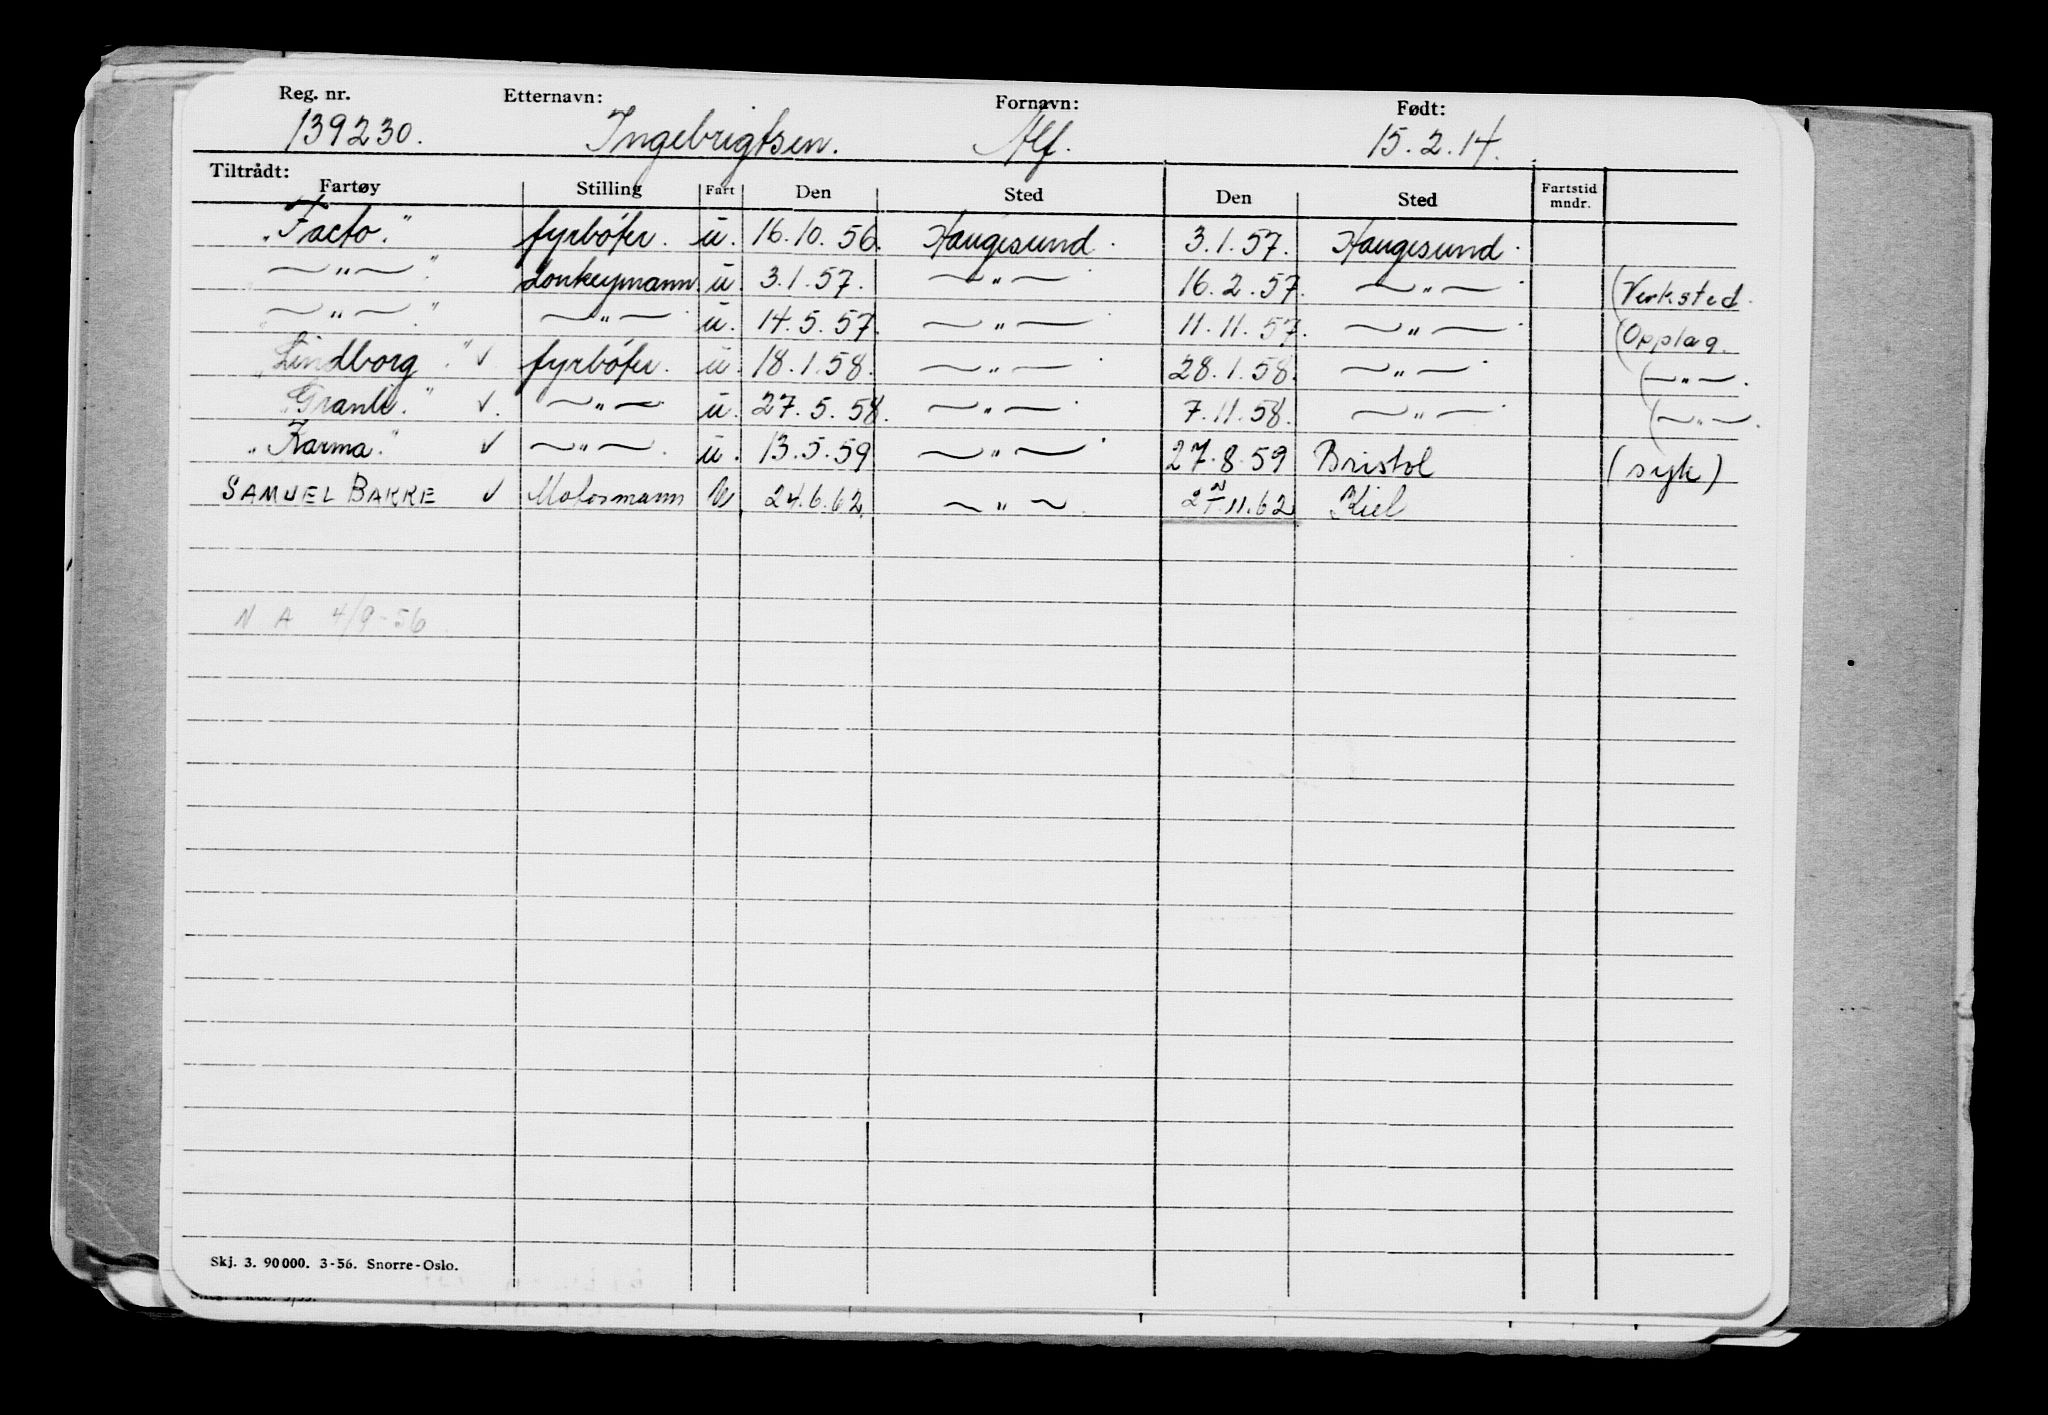 Reg. nr. Etternavn: Fornavn: Født:
139230. Ingebrigtsen. Alf. 15.2.14.
Tiltrådt:
Fartøy Stilling Fart Den Sted Den Sted Fartstid mndr.
„Facto." fyrbøter. u. 16.10.56. Haugesund. 3.1.57. Haugesund.
—"— " donkeymann. u. 3.1.57. —"— 16.2.57. —"— (Verksted.
—"— " —"— u. 14.5.57. —"— 11.11.57. —"— (Opplag.
„Lindborg" ✓ fyrbøter. u. 18.1.58. —"— 28.1.58. —"— (—"—.
" ✓. —"— u. 27.5.58. —"— 7.11.58. —"— (—"—.
„Karma." ✓ —"— u. 13.5.59 —"— 27.8.59 Bristol (syk)
SAMUEL BAKKE ✓ Motormann U 24.6.62. —"— 11.62 Kiel
N A 4/9-56
Skj. 3. 90000. 3-56. Snorre-Oslo.